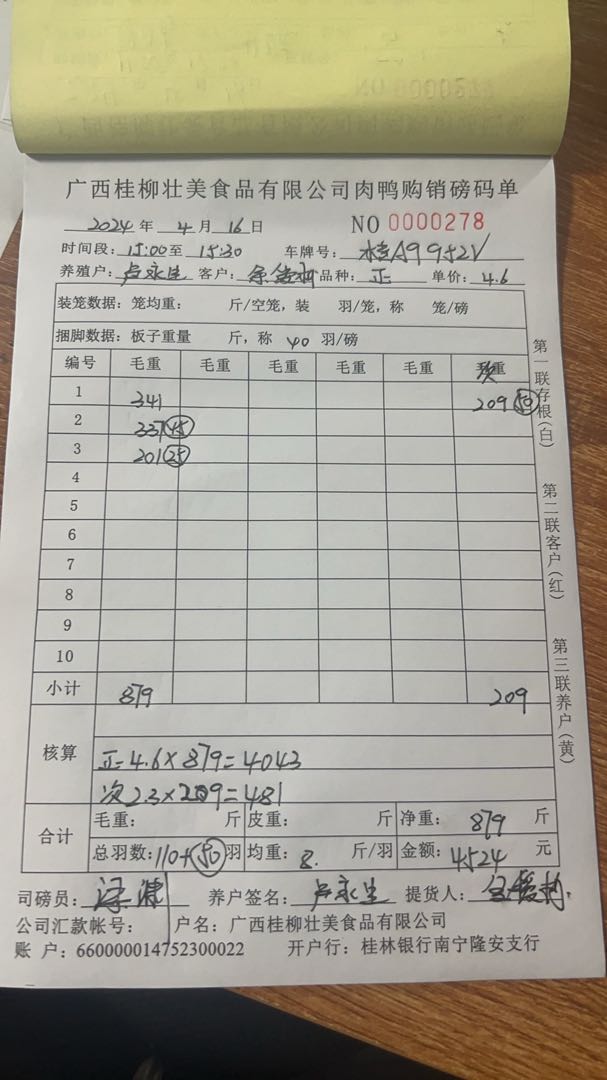 广西桂柳壮美食品有限公司肉鸭购销磅码单
2024 年 4 月 16 日 NO 0000278
时间段: 15:00 至 15:30 车牌号: 桂A99521V
养殖户: 卢永生 客户: 品种: 正 单价: 4.6
装笼数据: 笼均重: 斤/空笼, 装 羽/笼, 称 笼/磅
捆脚数据: 板子重量 斤, 称 40 羽/磅
编号 毛重 毛重 毛重 毛重 毛重 次重
1 341 209 50
2 337 45
3 201 25
4
5
6
7
8
9
10
小计 879 209
核算
正=4.6×879=4043
次2.3×209=481
合计 毛重: 斤 皮重: 斤 净重: 879 斤
总羽数: 110+50 羽 均重: 8. 斤/羽 金额: 4524 元
司磅员: 养户签名: 卢永生 提货人:
公司汇款帐号: 户名: 广西桂柳壮美食品有限公司
账 户: 660000014752300022 开户行: 桂林银行南宁隆安支行
第一联存根(白)
第二联客户(红)
第三联养户(黄)